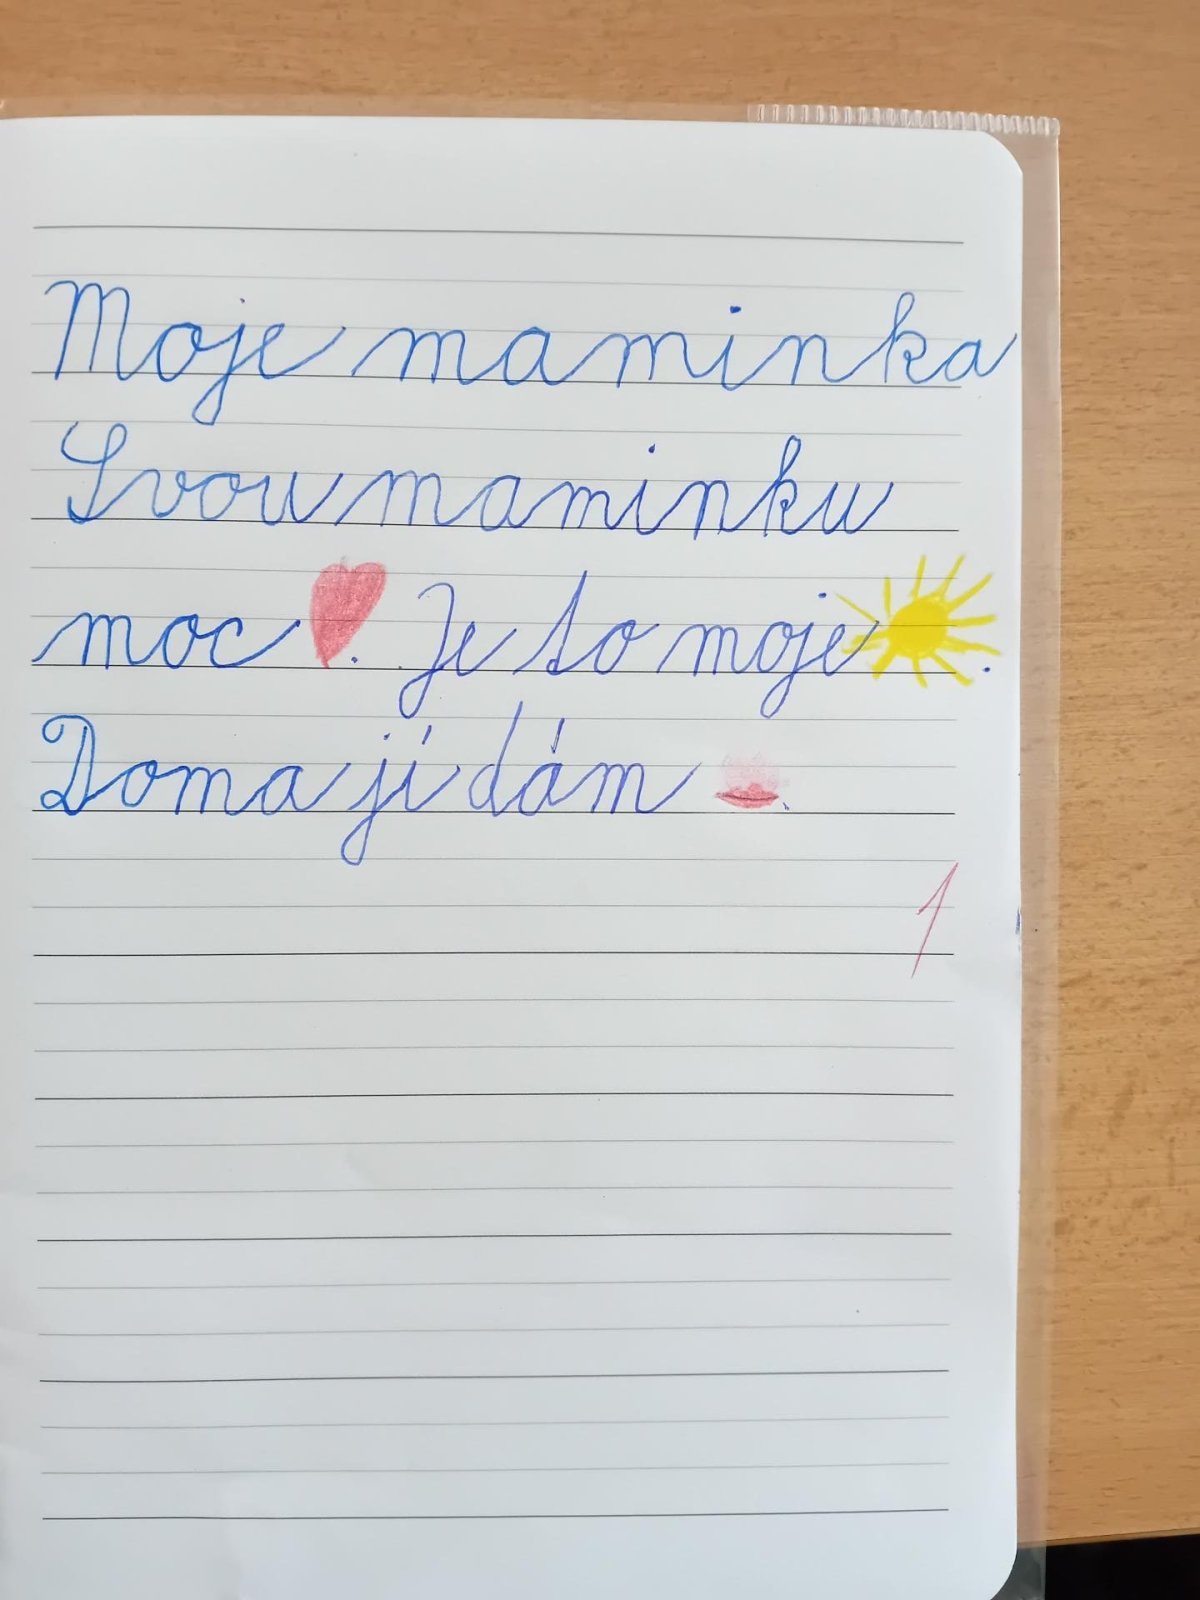 Moje maminka
Svou maminku
moc ❤. Je to moje ☀.
Doma jí dám 👄.
1